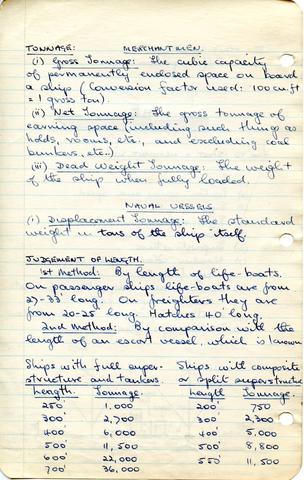 TONNAGE: MERCHANTMEN.
(i) Gross Tonnage: The cubic capacity
of permanently enclosed space on board
a ship (Conversion factor used: 100 cu.ft
= 1 gross ton).
(ii) Net Tonnage: The gross tonnage of
earning space (including such things as
holds, rooms, etc., and excluding coal
bunkers, etc..)
(iii) Dead Weight Tonnage: The weight
of the ship when fully loaded.
NAVAL VESSELS
(i) Displacement Tonnage: The standard
weight in tons of the ship itself.
JUDGEMENT OF LENGTH.
1st Method: By length of life-boats.
On passenger ships life-boats are from
27-33' long. On freighters they are
from 20-25' long. Hatches 40' long.
2nd Method: By comparison with the
length of an escort vessel, which is known
Ships with full super-structure and tankers.
Length. Tonnage.
250' 1,000
300' 2,700
400' 6,000
500' 11,500
600' 22,000
700' 36,000
Ships with composite
or split superstructure
Length Tonnage.
200' 750
300' 2,300
400' 5,000
500' 8,800
550' 11,500